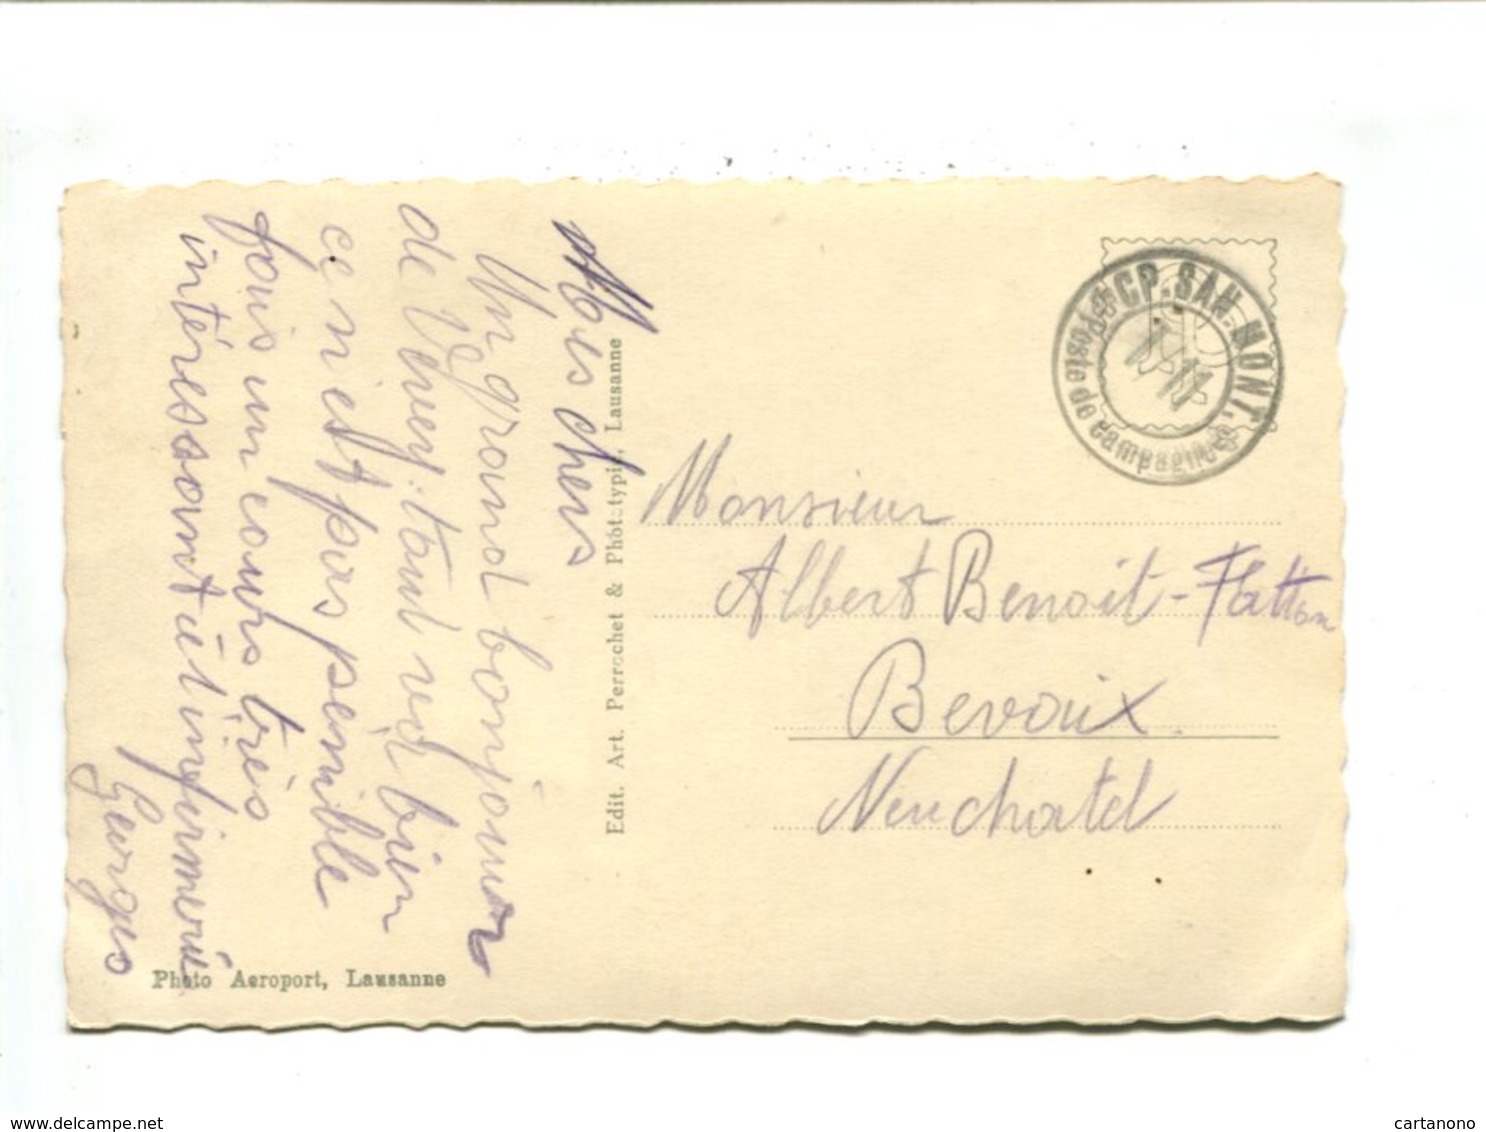 Mes chers
Un grand bonjour
de Vevey. tout va bien
ce n'est pas pénible
fais un cours très
intéressant à l'infirmerie
Georges
Edit. Art. Perrochet & Phototypie, Lausanne
Photo Aeroport, Lausanne
CP. SAN. MONT.
Poste de campagne
Monsieur
Albert Benoit-Fatton
Bevaix
Neuchatel
www.delcampe.net
cartanono